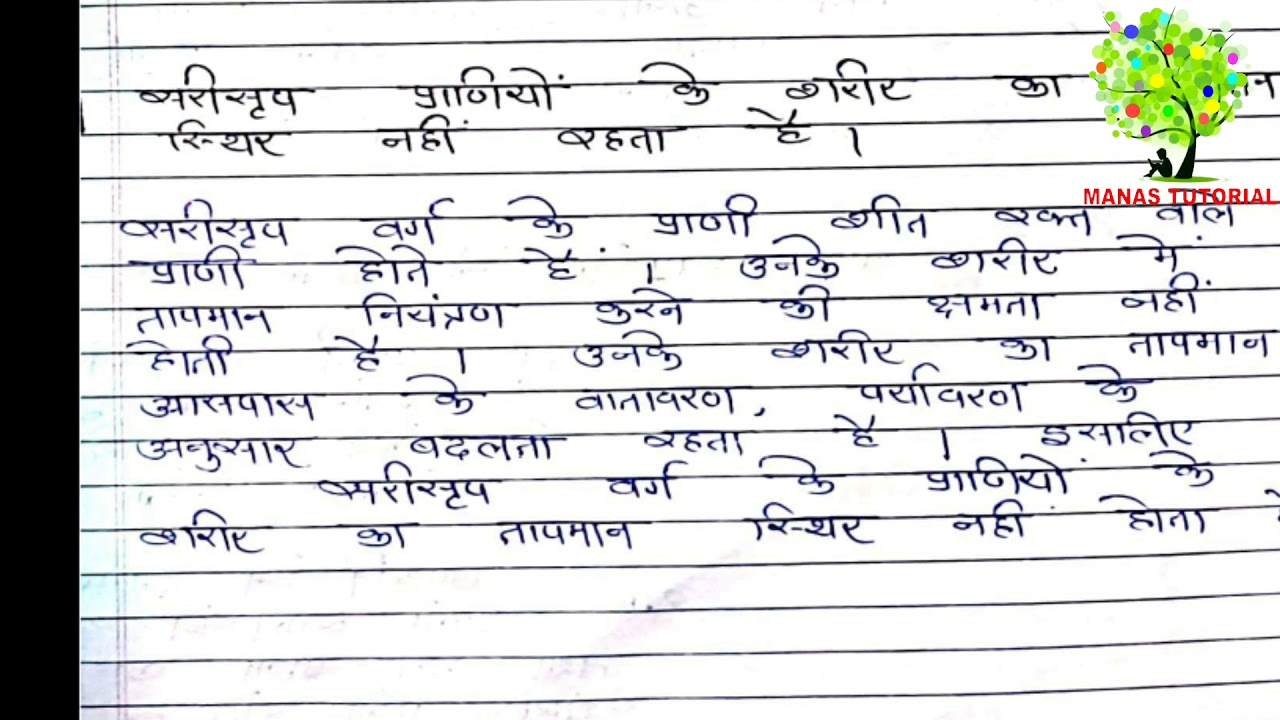 सरीसृप प्राणियों के शरीर का
स्थिर नहीं रहता है ।
सरीसृप वर्ग के प्राणी शीत रक्त वाले
प्राणी होते हैं । उनके शरीर में
तापमान नियंत्रण करने की क्षमता नहीं
होती है । उनके शरीर का तापमान
आसपास के वातावरण, पर्यावरण के
अनुसार बदलता रहता है । इसलिए
सरीसृप वर्ग के प्राणियों के
शरीर का तापमान स्थिर नहीं होता
MANAS TUTORIAL